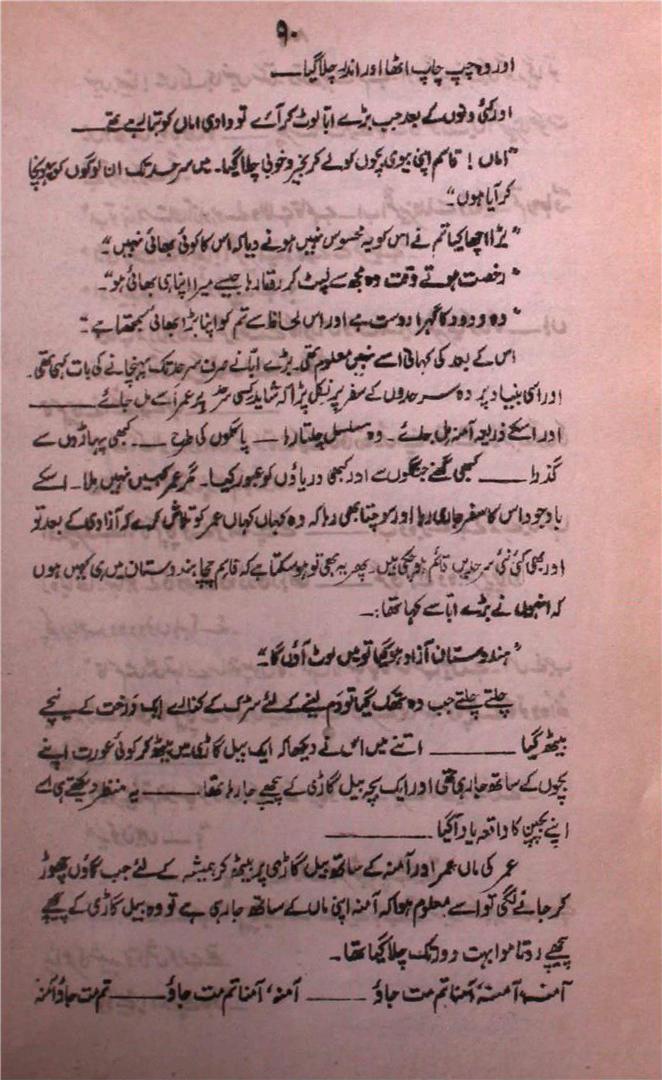 ۹۰
اور وہ چپ چاپ اٹھا اور اندر چلا گیا ــــ
اور کئی دنوں کے بعد جب بڑے ابّا لوٹ کر آئے تو دادی اماں کو بتا رہے تھے ــــ
"اماں! قاسم اپنی بیوی بچوں کو لے کر بخیر و خوبی چلا گیا۔ میں سرحد تک ان لوگوں کو پہونچا
کر آیا ہوں"
"بڑا اچھا کیا تم نے اس کو یہ محسوس نہیں ہونے دیا کہ اس کا کوئی بھائی نہیں"۔
"رخصت ہوتے وقت وہ مجھ سے لپٹ کر روتا رہا جیسے میرا اپنا ہی بھائی ہو"۔
"وہ ودود کا گہرا دوست ہے اور اس لحاظ سے تم کو اپنا بڑا بھائی سمجھتا ہے"۔
اس کے بعد کی کہانی اسے نہیں معلوم تھی۔ بڑے ابّا نے صرف سرحد تک پہنچانے کی بات کہی تھی۔
اور اسی بنیاد پر وہ سرحدوں کے سفر پر نکل پڑا کہ شاید کسی سرحد پر عمر اسے مل جائے ــــ
اور اسکے ذریعہ آمنہ مل جائے۔ وہ مسلسل چلتا رہا ــــ پاگلوں کی طرح ــــ کبھی پہاڑوں سے
گذرا ــــ کبھی گھنے جنگلوں سے اور کبھی دریاؤں کو عبور کیا۔ مگر عمر کہیں نہیں ملا۔ اسکے
باوجود اس کا سفر جاری رہا اور سوچتا بھی رہا کہ وہ کہاں کہاں عمر کو تلاش کرے کہ آزادی کے بعد تو
اور بھی کئی نئی سرحدیں قائم ہو چکی ہیں۔ پھر یہ بھی تو ہو سکتا ہے کہ قاسم چچا ہندوستان میں ہی کہیں ہوں
کہ انہوں نے بڑے ابّا سے کہا تھا:ــ
"ہندوستان آزاد ہو گیا تو میں لوٹ آؤں گا"۔
چلتے چلتے جب وہ تھک گیا تو دَم لینے کے لئے سڑک کے کنارے ایک درخت کے نیچے
بیٹھ گیا ــــ اتنے میں اس نے دیکھا کہ ایک بیل گاڑی میں بیٹھ کر کوئی عورت اپنے
بچوں کے ساتھ جا رہی تھی اور ایک بچہ بیل گاڑی کے پیچھے جا رہا تھا ــــ یہ منظر دیکھتے ہی اسے
اپنے بچپن کا واقعہ یاد آگیا ــــ
عمر کی ماں عمر اور آمنہ کے ساتھ بیل گاڑی پر بیٹھ کر ہمیشہ کے لئے جب گاؤں چھوڑ
کر جانے لگی تو اسے معلوم ہوا کہ آمنہ اپنی ماں کے ساتھ جا رہی ہے تو وہ بیل گاڑی کے پیچھے
پیچھے روتا ہوا بہت دور تک چلا گیا تھا۔
آمنہ، آمنہ، آمنا تم مت جاؤ ــــ آمنہ، آمنا تم مت جاؤ ــــ تم مت جاؤ آمنہ